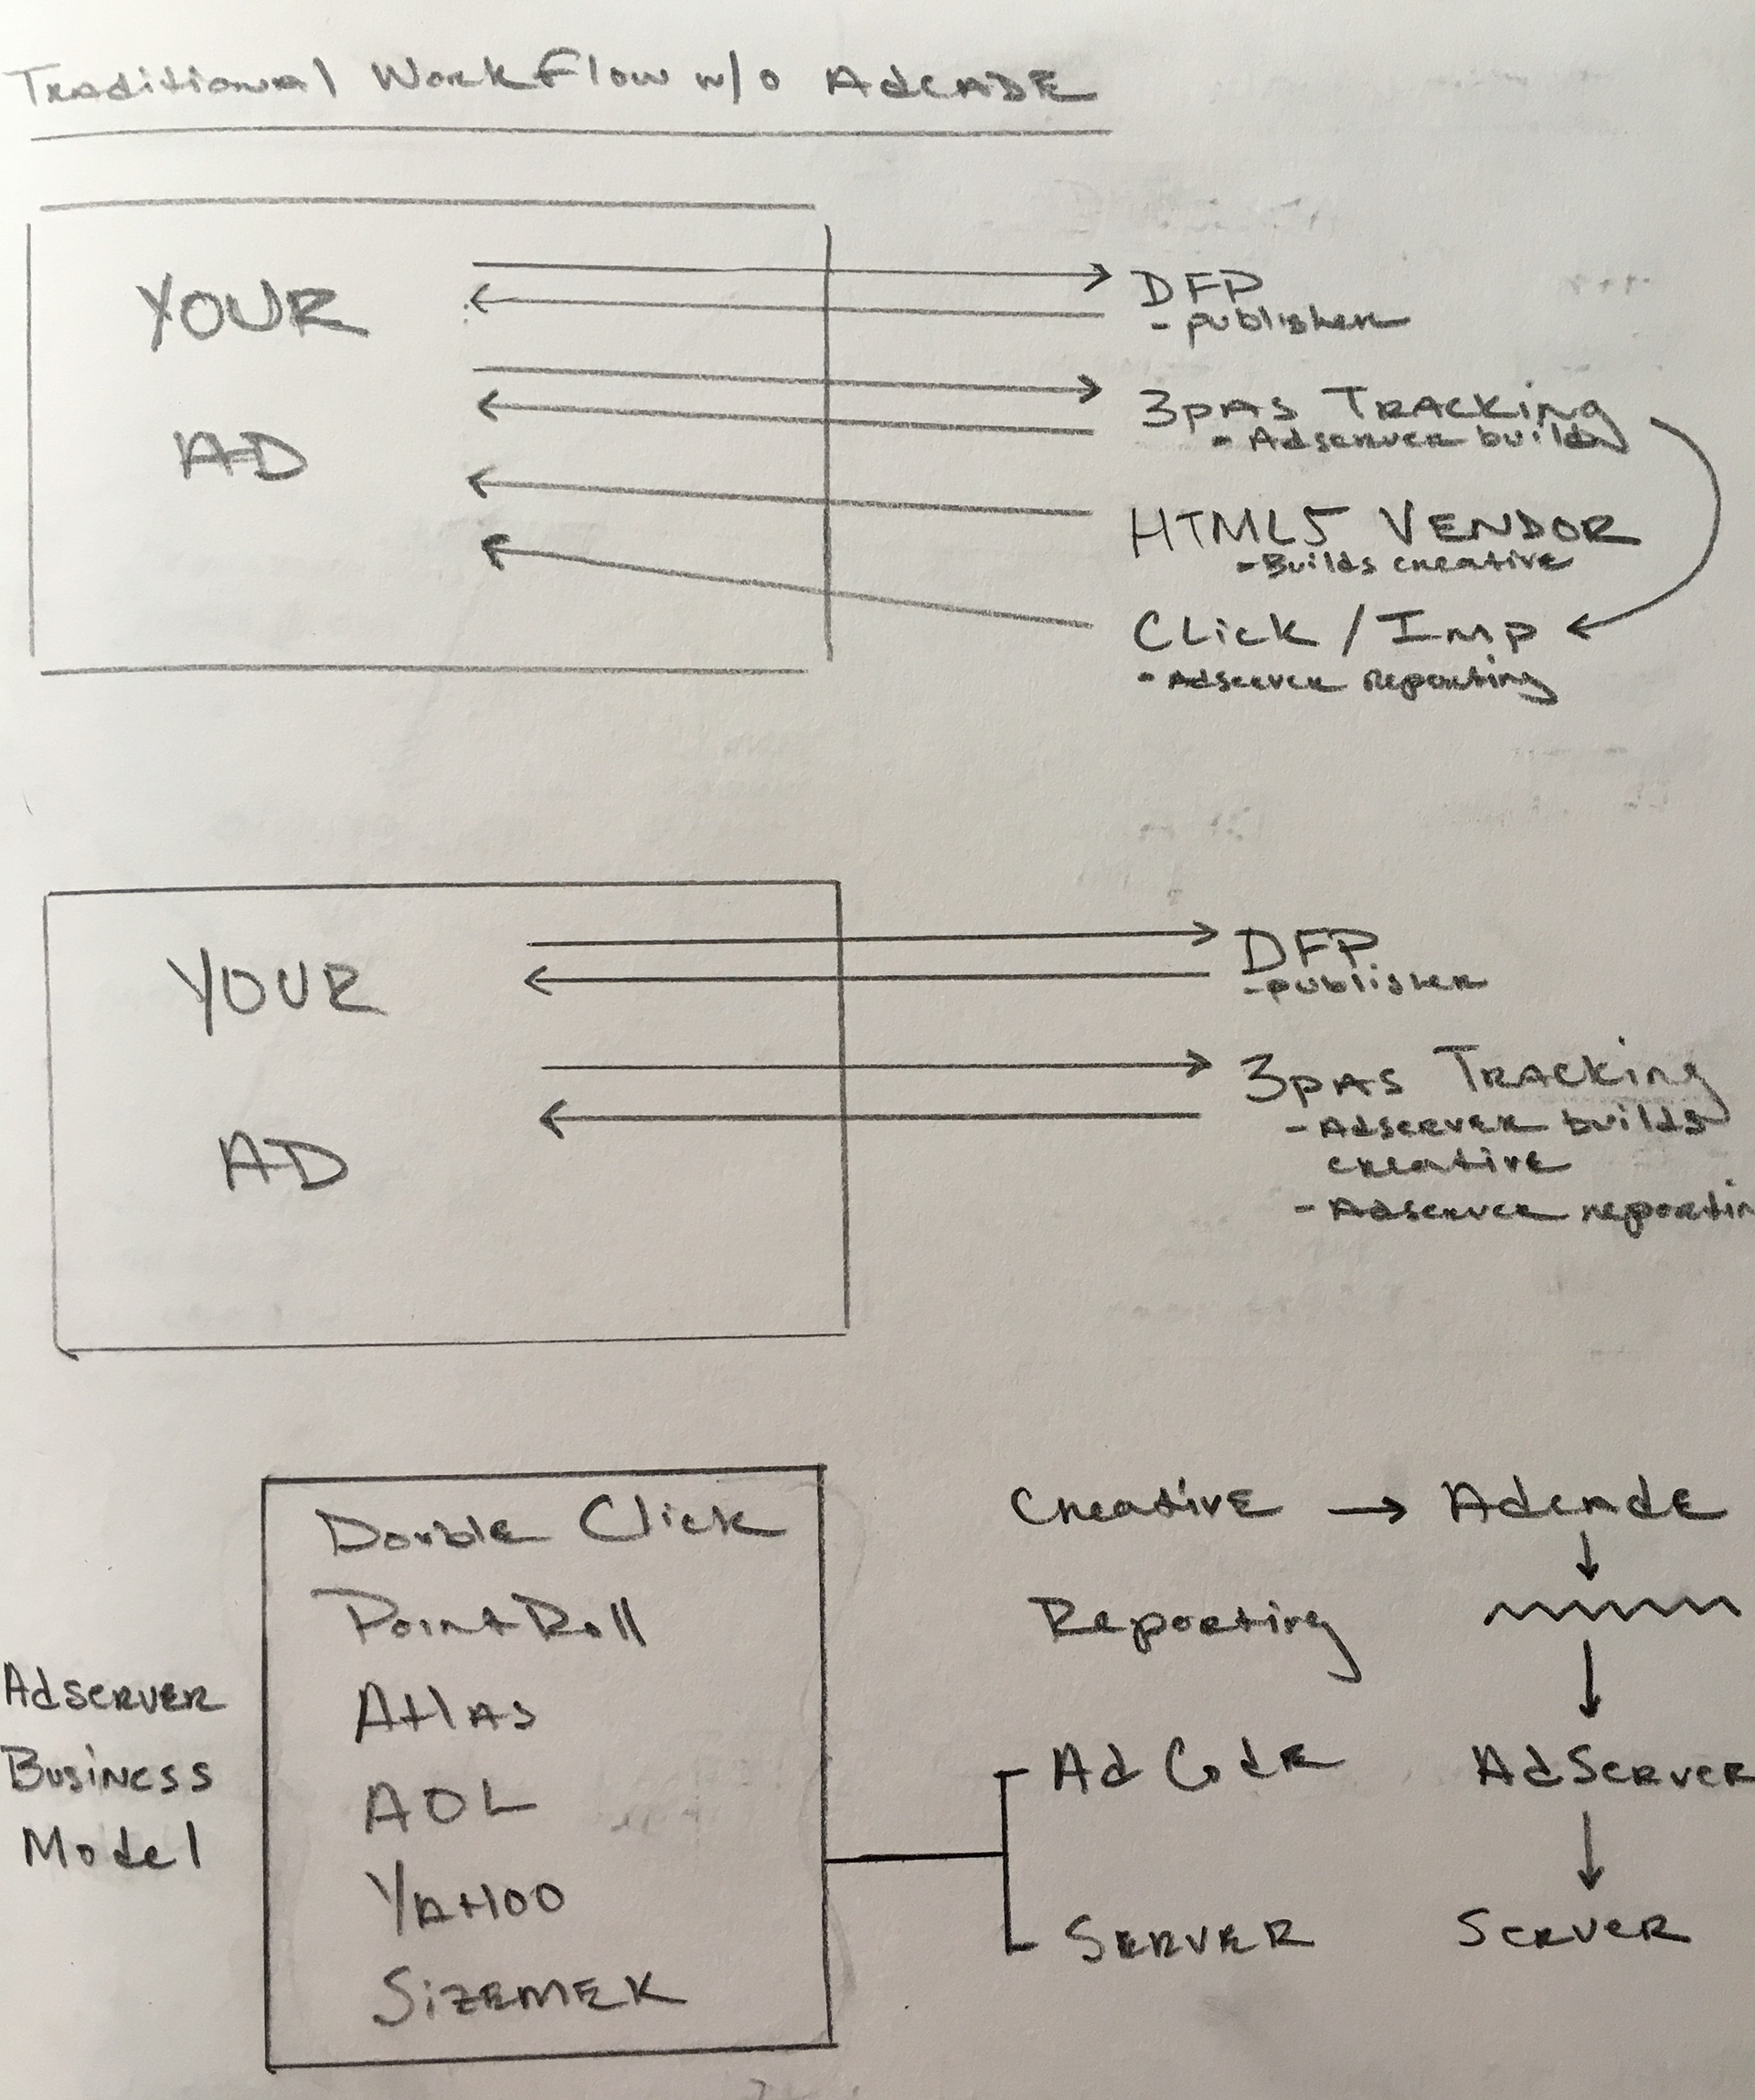 Traditional WorkFlow w/o AdCADE
YOUR
AD
DFP
- publisher
3pAS TRACKing
- Adserver builds
HTML5 VENDOR
- Builds creative
CLick / Imp
- Adserver Reporting
YOUR
AD
DFP
- publisher
3pAS TRACKing
- Adserver builds
creative
- Adserver reportin
Adserver
Business
Model
Double Click
PointRoll
Atlas
AOL
YAHOO
SizEMEK
Creative → AdcadE
Reporting
Ad
AdServer
SERVER
Server